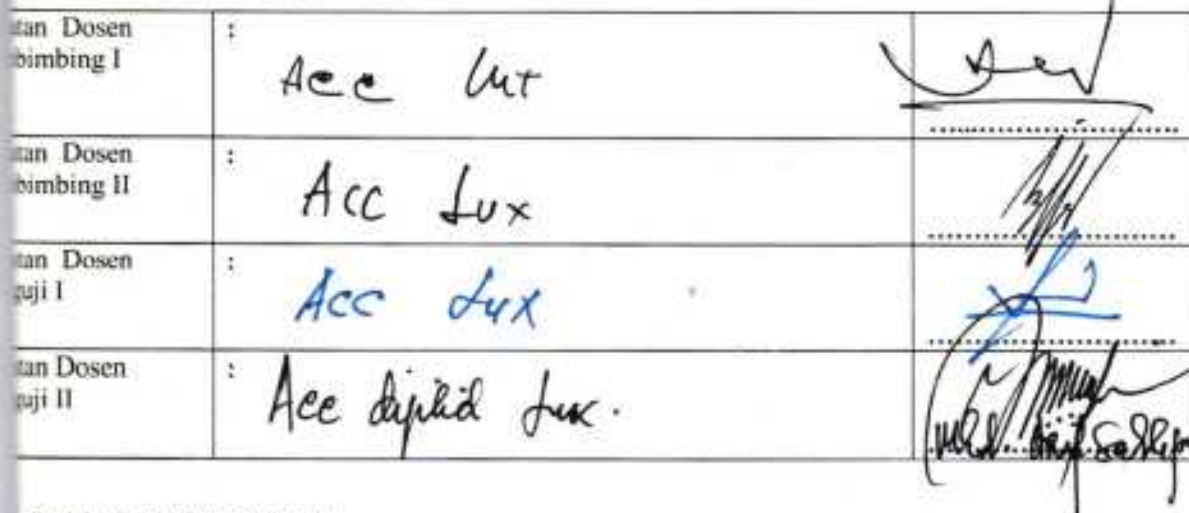 tan Dosen :
bimbing I
Acc
tan Dosen :
bimbing II
Acc Lux
tan Dosen :
guji I
Acc Lux
tan Dosen :
guji II
Acc dijilid Lux.